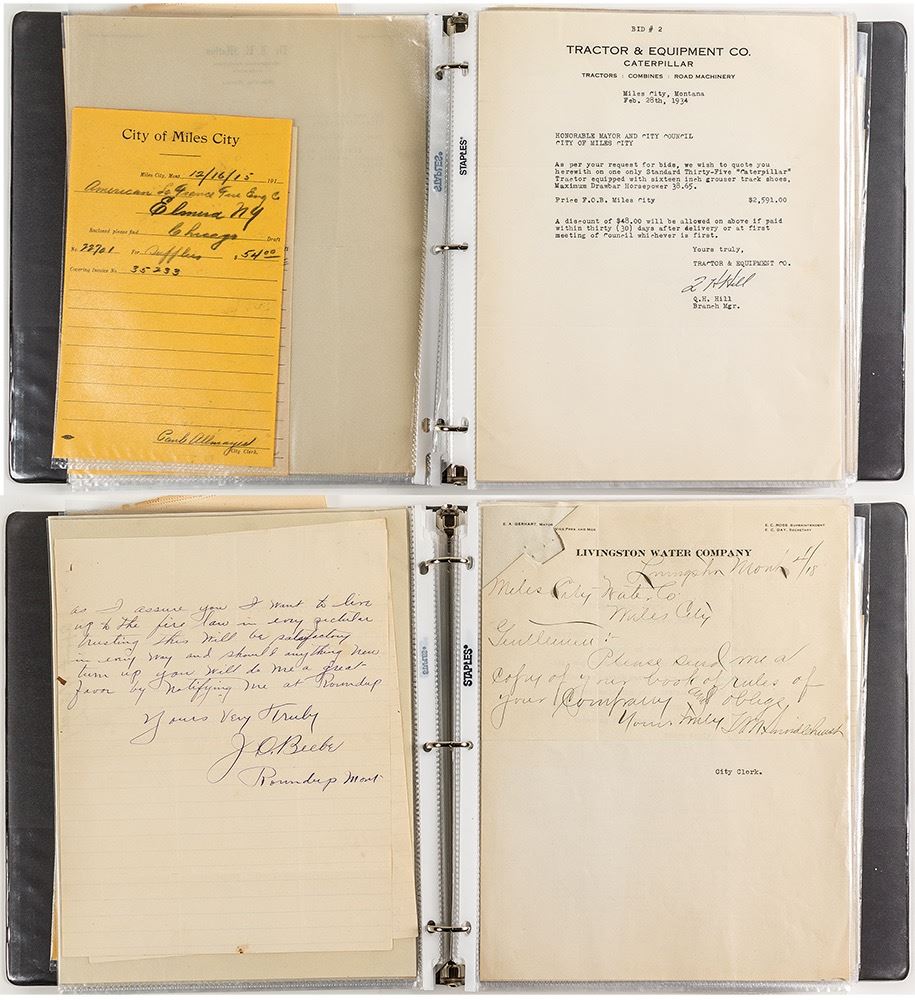 City of Miles City
Miles City, Mont. 12/16/15 191
American La France Fire Eng C
Elmira NY
Enclosed please find Chicago Draft
No. 22701 For Supplies $ 54.00
Covering Invoice No. 35233
City Clerk.
STAPLES®
BID # 2
TRACTOR & EQUIPMENT CO.
CATERPILLAR
TRACTORS : COMBINES : ROAD MACHINERY
Miles City, Montana
Feb. 28th, 1934
HONORABLE MAYOR AND CITY COUNCIL
CITY OF MILES CITY
As per your request for bids, we wish to quote you
herewith on one only Standard Thirty-Five "Caterpillar"
Tractor equipped with sixteen inch grouser track shoes,
Maximum Drawbar Horsepower 38.65.
Price F.O.B. Miles City $2,591.00
A discount of $48.00 will be allowed on above if paid
within thirty (30) days after delivery or at first
meeting of Council whichever is first.
Yours truly,
TRACTOR & EQUIPMENT CO.
Q H Hill
Q.H. Hill
Branch Mgr.
as I assure you I want to live
up to the fire law in evry pticular
trusting this will be satisfactory
in evry way and should anything new
turn up you will do me a great
favor by notifying me at Roundup
Yours Very Truly
J. D. Beebe
Roundup Mont
STAPLES®
E. A. GERHART, MAYOR
VICE PRES AND MGR
E. C. MOSS SUPERINTENDENT
F. C. DAY, SECRETARY
LIVINGSTON WATER COMPANY
Livingston Mont
Miles City Wate. Co.
Miles City
Gentlemen :-
Please send me a
copy of your book of rules of
your Company & oblige
Yours truly
City Clerk.